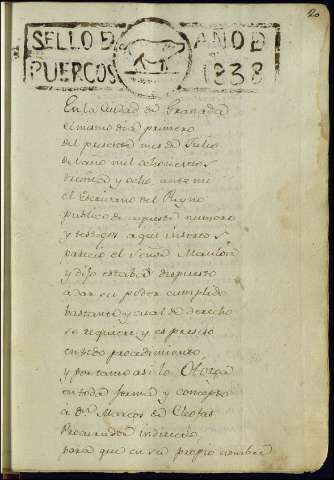 20
SELLO D AÑO D
PUERCOS 1838
En la Ciudad de Granada
el mismo dia primero
del presente mes de Julio
del año mil ochocientos
y ocho, ante mi
el Escribano del Reyno
publico de su numero
y testigos aqui insertos
parecio el Señor
y dijo estaba dispuesto
a dar su poder cumplido
bastante y cual de derecho
se requiere y es preciso
en todo procedimiento,
y por tanto asi lo Otorga
en toda forma y concepto
á Dn. Marcos de Cleofas
Procurador indirecto
para que en su propio nombre